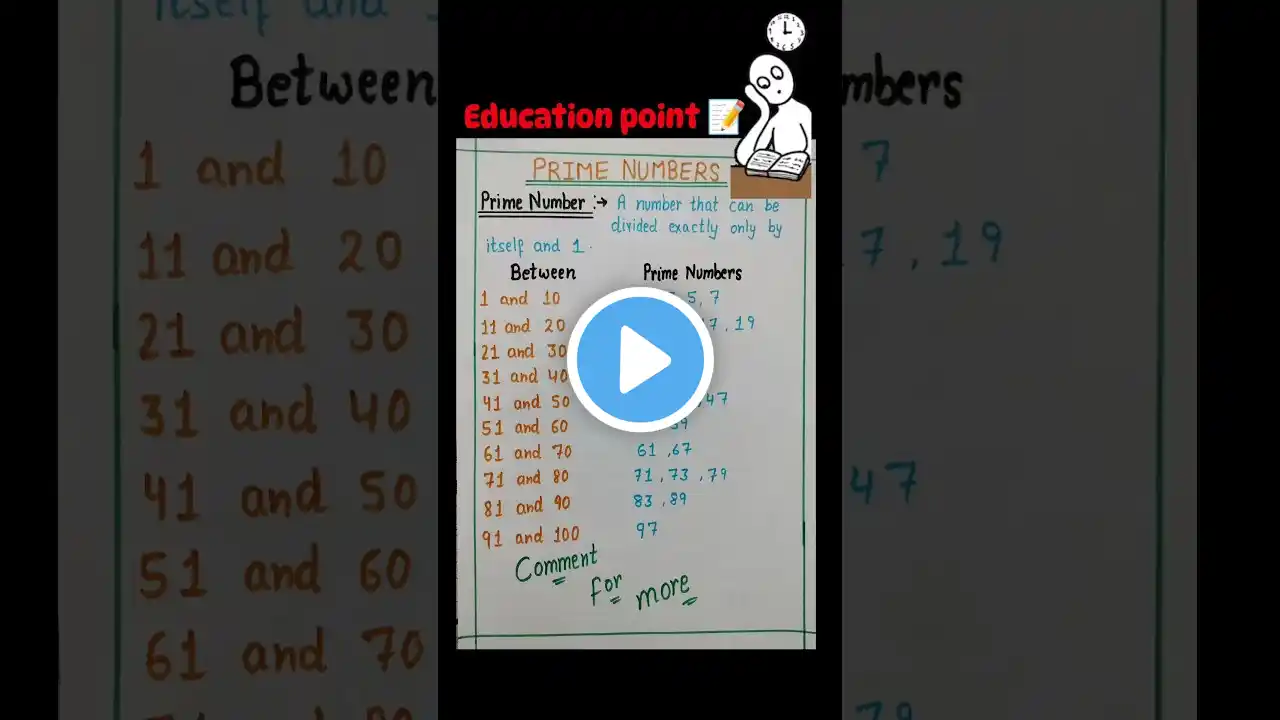 Education point
PRIME NUMBERS
Prime Number :→ A number that can be
divided exactly only by
itself and 1.
Between Prime Numbers
1 and 10 5, 7
11 and 20 17, 19
21 and 30
31 and 40
41 and 50 47
51 and 60 59
61 and 70 61, 67
71 and 80 71, 73, 79
81 and 90 83, 89
91 and 100 97
Comment
for more
itself and
Between mbers
1 and 10 7
11 and 20 7, 19
21 and 30
31 and 40
41 and 50 47
51 and 60
61 and 70
79